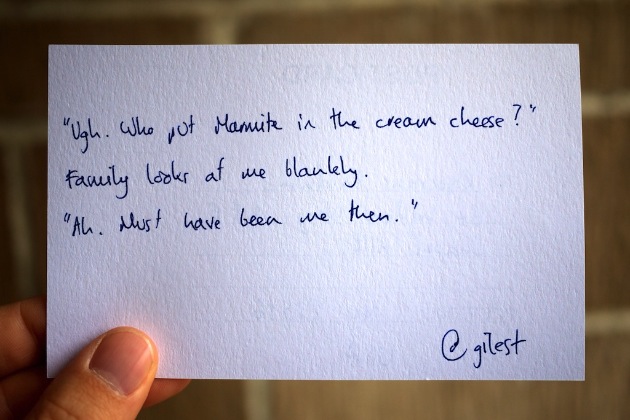 "Ugh. Who put Marmite in the cream cheese?"
Family looks at me blankly.
"Ah. Must have been me then."
@gilest